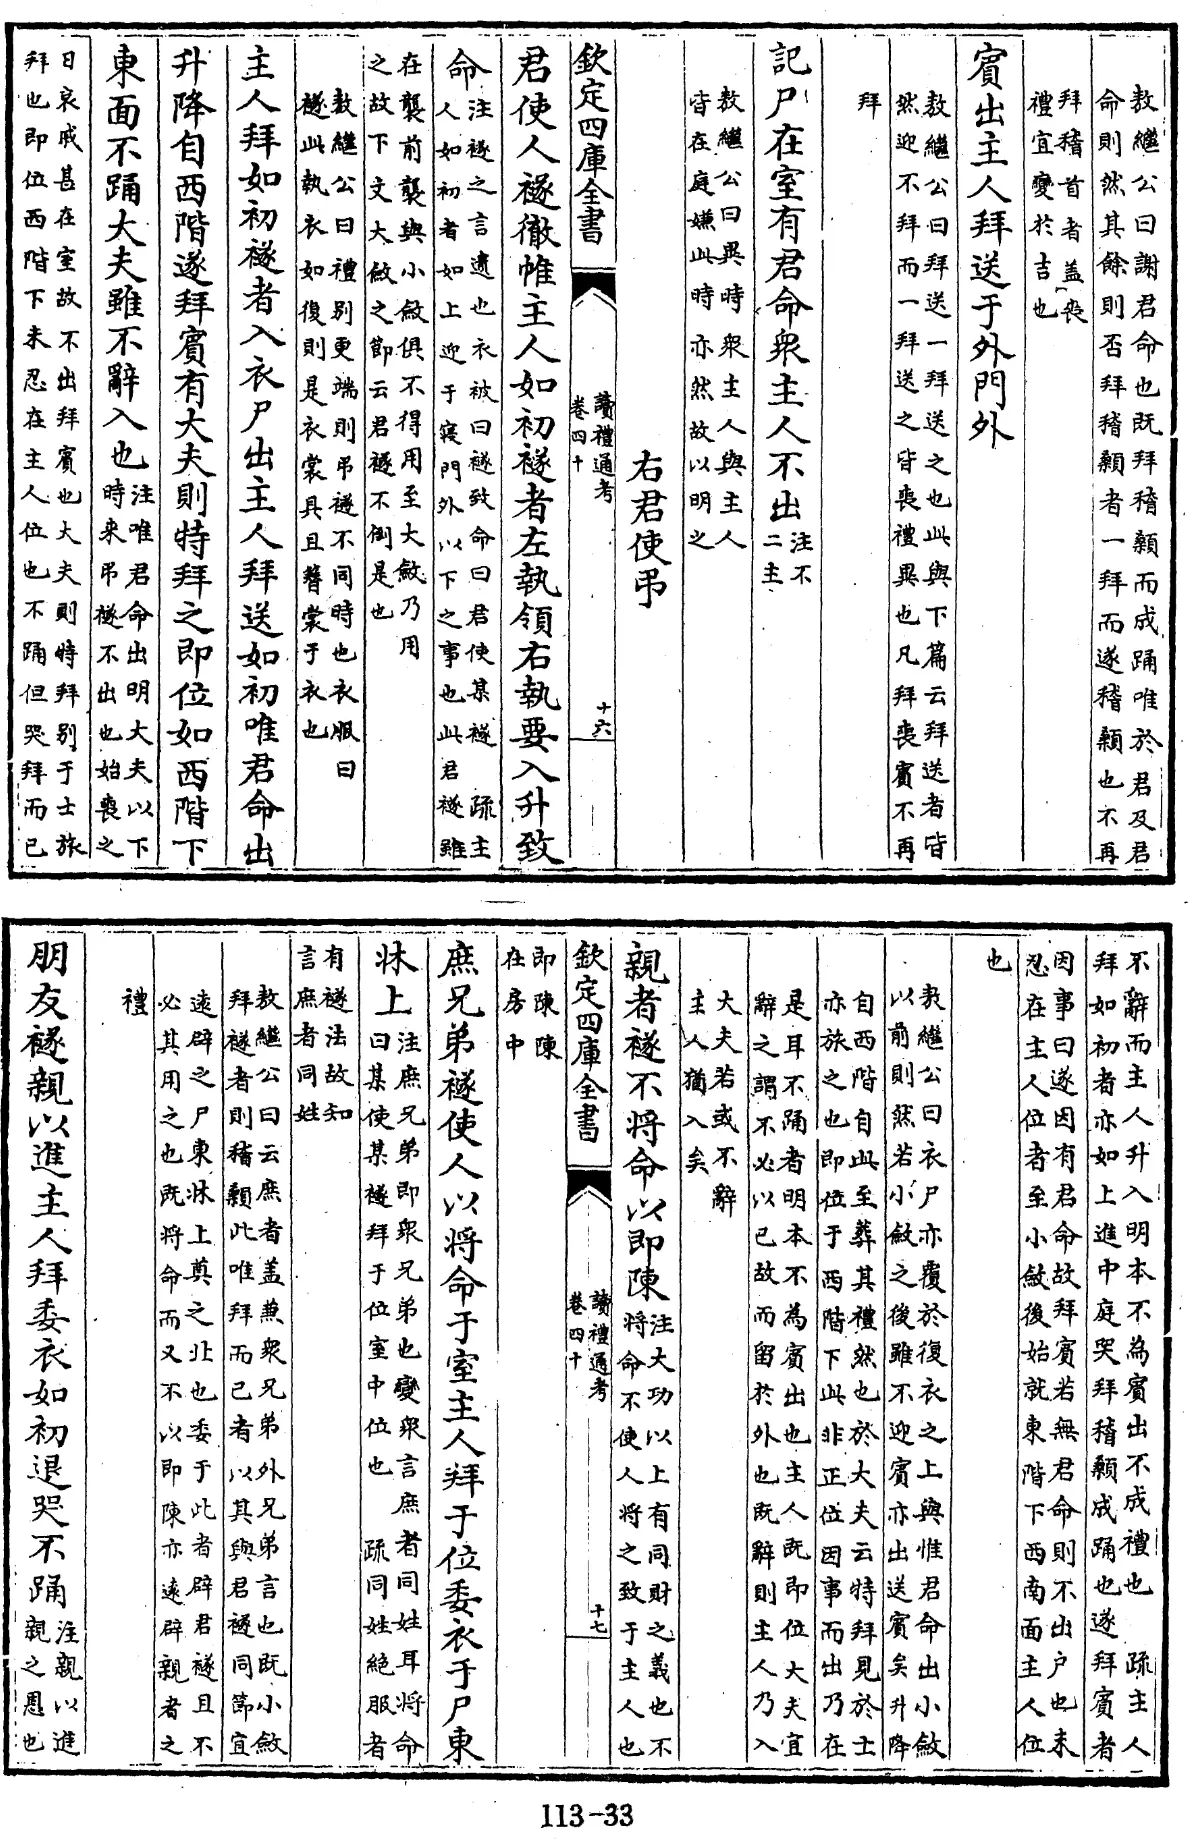 敖繼公曰謝君命也既拜稽顙而成踊唯於君及君
命則然其餘則否拜稽顙者一拜而遂稽顙也不再
拜稽首者蓋喪
禮宜變於吉也
賓出主人拜送于外門外
敖繼公曰拜送一拜送之也此與下篇云拜送者皆
然迎不拜而一拜送之皆喪禮異也凡拜喪賓不再
拜
記尸在室有君命衆主人不出注不
二主
敖繼公曰異時衆主人與主人
皆在庭嫌此時亦然故以明之
右君使弔
欽定四庫全書
讀禮通考
卷四十
十六
君使人襚徹帷主人如初襚者左執領右執要入升致
命注襚之言遺也衣被曰襚致命曰君使某襚 疏主
人如初者如上迎于寢門外以下之事也此君襚雖
在襲前襲與小斂俱不得用至大斂乃用
之故下文大斂之節云君襚不倒是也
敖繼公曰禮別更端則弔襚不同時也衣服曰
襚此執衣如復則是衣裳具且簪裳于衣也
主人拜如初襚者入衣尸出主人拜送如初唯君命出
升降自西階遂拜賓有大夫則特拜之即位如西階下
東面不踊大夫雖不辭入也注唯君命出明大夫以下
時来弔襚不出也始喪之
日哀戚甚在室故不出拜賓也大夫則特拜別于士旅
拜也即位西階下未忍在主人位也不踊但哭拜而已
不辭而主人升入明本不為賓出不成禮也 疏主人
拜如初者亦如上進中庭哭拜稽顙成踊也遂拜賓者
因事曰遂因有君命故拜賓若無君命則不出户也未
忍在主人位者至小斂後始就東階下西南面主人位
也
敖繼公曰衣尸亦覆於復衣之上與惟君命出小斂
以前則然若小斂之後雖不迎賓亦出送賓矣升降
自西階自此至葬其禮然也於大夫云特拜見於士
亦旅之也即位于西階下此非正位因事而出乃在
是耳不踊者明本不為賓出也主人既即位大夫宜
辭之謂不必以已故而留於外也既辭則主人乃入
大夫若或不辭
主人猶入矣
親者襚不將命以即陳注大功以上有同財之義也不
將命不使人將之致于主人也
即陳陳
在房中
欽定四庫全書
讀禮通考
卷四十
十七
庶兄弟襚使人以將命于室主人拜于位委衣于尸東
牀上注庶兄弟即衆兄弟也變衆言庶者同姓耳將命
曰某使某襚拜于位室中位也 疏同姓絕服者
有襚法故知
言庶者同姓
敖繼公曰云庶者蓋兼衆兄弟外兄弟言也既小斂
拜襚者則稽顙此唯拜而已者以其與君襚同節宜
逺辟之尸東牀上奠之北也委于此者辟君襚且不
必其用之也既將命而又不以即陳亦逺辟親者之
禮
朋友襚親以進主人拜委衣如初退哭不踊注親以進
親之恩也
113-33